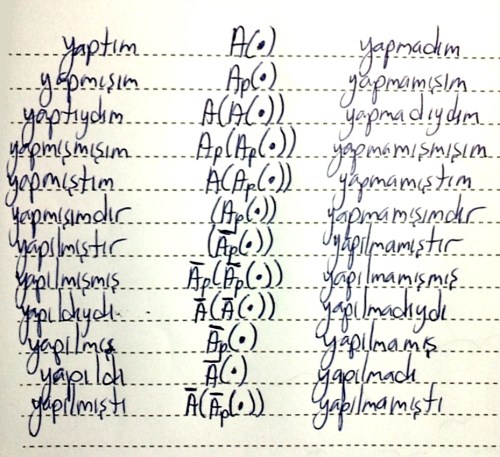 yaptım A(•) yapmadım
yapmışım Ap(•) yapmamışım
yaptıydım A(A(•)) yapmadıydım
yapmışmışım Ap(Ap(•)) yapmamışmışım
yapmıştım A(Ap(•)) yapmamıştım
yapmışımdır (Ap(•)) yapmamışımdır
yapılmıştır (Āp(•)) yapılmamıştır
yapılmışmış Āp(Āp(•)) yapılmamışmış
yapıldıydı Ā(Ā(•)) yapılmadıydı
yapılmış Āp(•) yapılmamış
yapıldı Ā(•) yapılmadı
yapılmıştı Ā(Āp(•)) yapılmamıştı